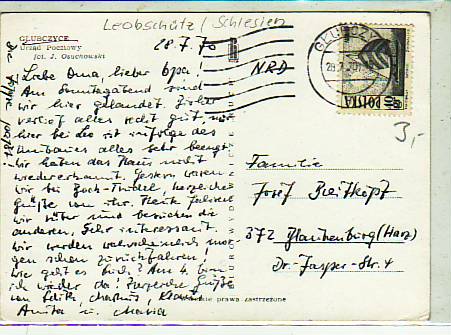 Leobschütz / Schlesien
GŁUBCZYCE
Urząd Pocztowy
fot. J. Osuchowski
28.7.70
NRD
GŁUBCZY
28.7.70
POLSKA
3,-
Liebe Oma, lieber Opa!
Am Sonntagabend sind
wir hier gelandet. Bisher
verlief alles recht gut, nur
hier bei ist infolge des
Umbaues alles sehr beengt,
wir haben das Haus nicht
wiedererkannt. Gestern waren
wir bei herzliche
Grüße von ihr. Heute fahren
wir rüber und besuchen die
anderen. Sehr interessant.
Wir werden wahrscheinlich mor-
gen schon zurückfahren!
Wie geht es Euch? Am 4. bin
ich wieder da! Herzliche Grüße
von Edith, Markus, Klaus
Anita u. Maria
Familie
Josef Breitkopf
372 Blankenburg (Harz)
Dr. Jasper-Str. 4
prawa zastrzeżone